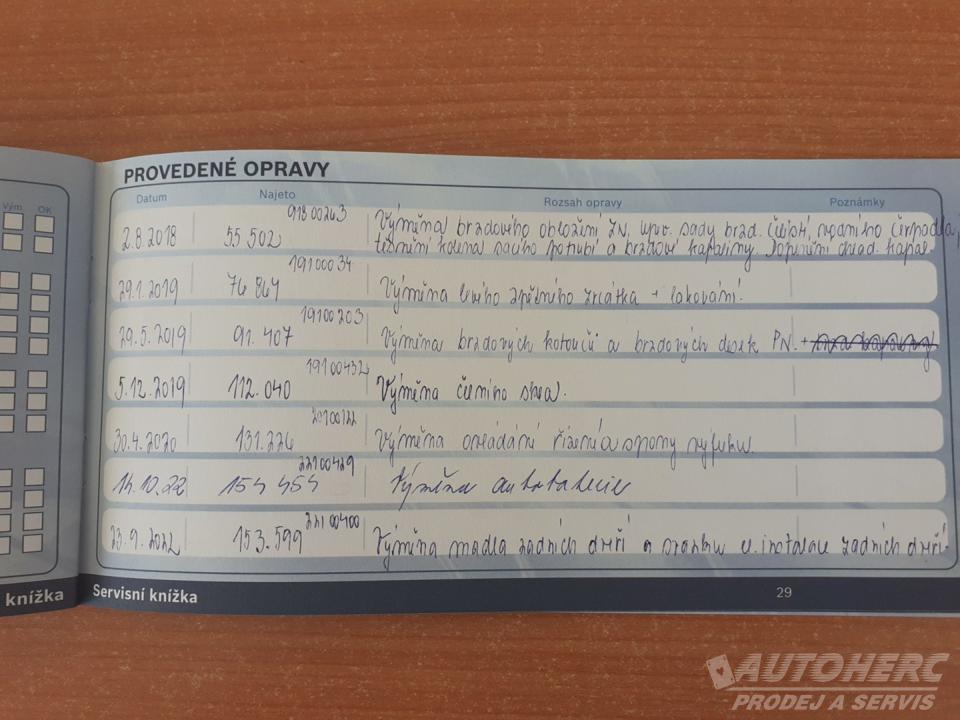 PROVEDENÉ OPRAVY
Vým. OK
Datum Najeto Rozsah opravy Poznámky
91800263
2.8.2018 55 502 Výměna brzdového obložení ZN, sady brzd. vodního čerpadla,
těsnění kolena sacího potrubí a brzdové kapaliny. Doplnění chlad. kapal.
19100034
29.1.2019 74 864 Výměna levého zpětného zrcátka + lakování.
19100203
29.5.2019 91.407 Výměna brzdových kotoučů a brzdových desek PN. +
19100432
5.12.2019 112.040 Výměna čelního skla.
20100122
30.4.2020 131.226 Výměna ovládání řízení a spony výfuku
22100429
14.10.22 154 454 Výměna autobaterie
22100400
23.9.2022 153.599 Výměna madla zadních dveří a svazku el. instalace zadních dveří.
knížka Servisní knížka 29
AUTOHERC
PRODEJ A SERVIS